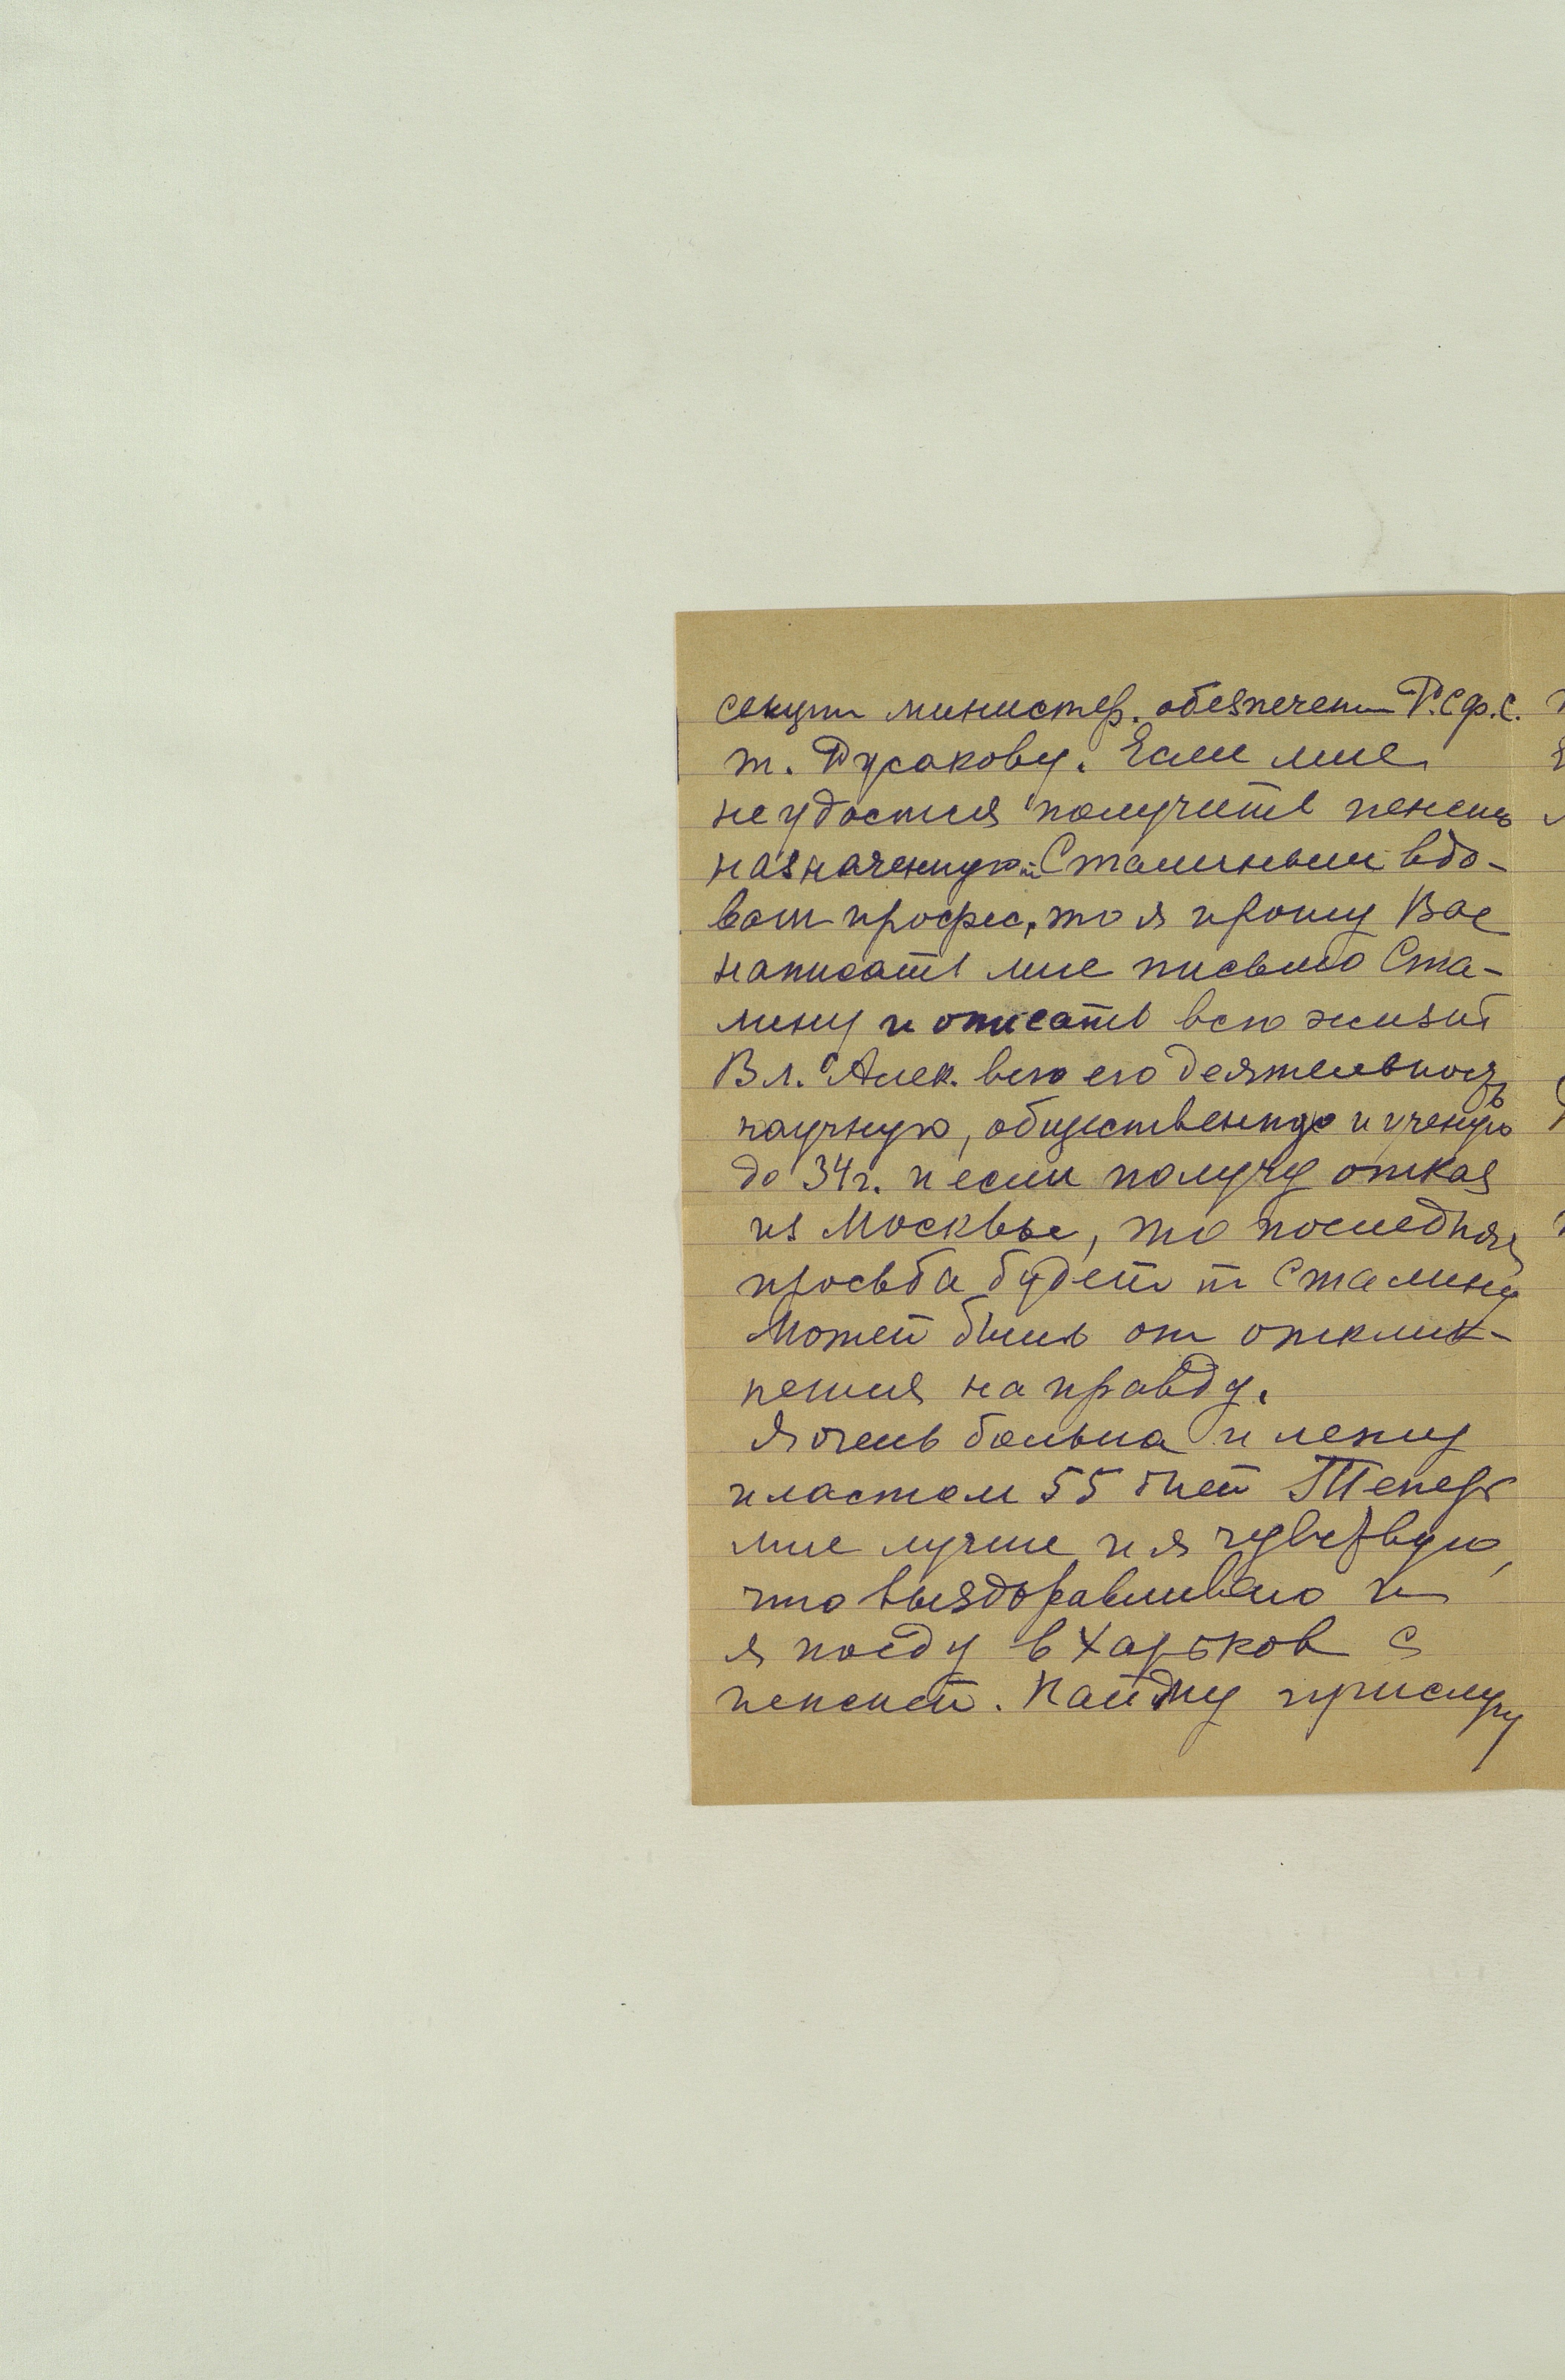 секции министер. обезпечени Р.С.ф.С.
т. Русакову. Если мне
не удастся получить пенсию
назначенную т. Сталиным вдо-
вам профес., то я прошу Вас
написать мне письмо Ста-
лину и описать всю жизнь
Вл. Алек. всю его деятельность
научную, общественную и ученую
до 34 г. и если получу отказ
из Москвы, то последняя
просьба будет т. Сталину
Может быть он отклик-
нется на правду.
Я очень больна и лежу
пластом 55 дней Теперь
мне лучше и я чувствую,
что выздоравливаю и
я поеду в Харьков с
пенсией. Найдму прислугу